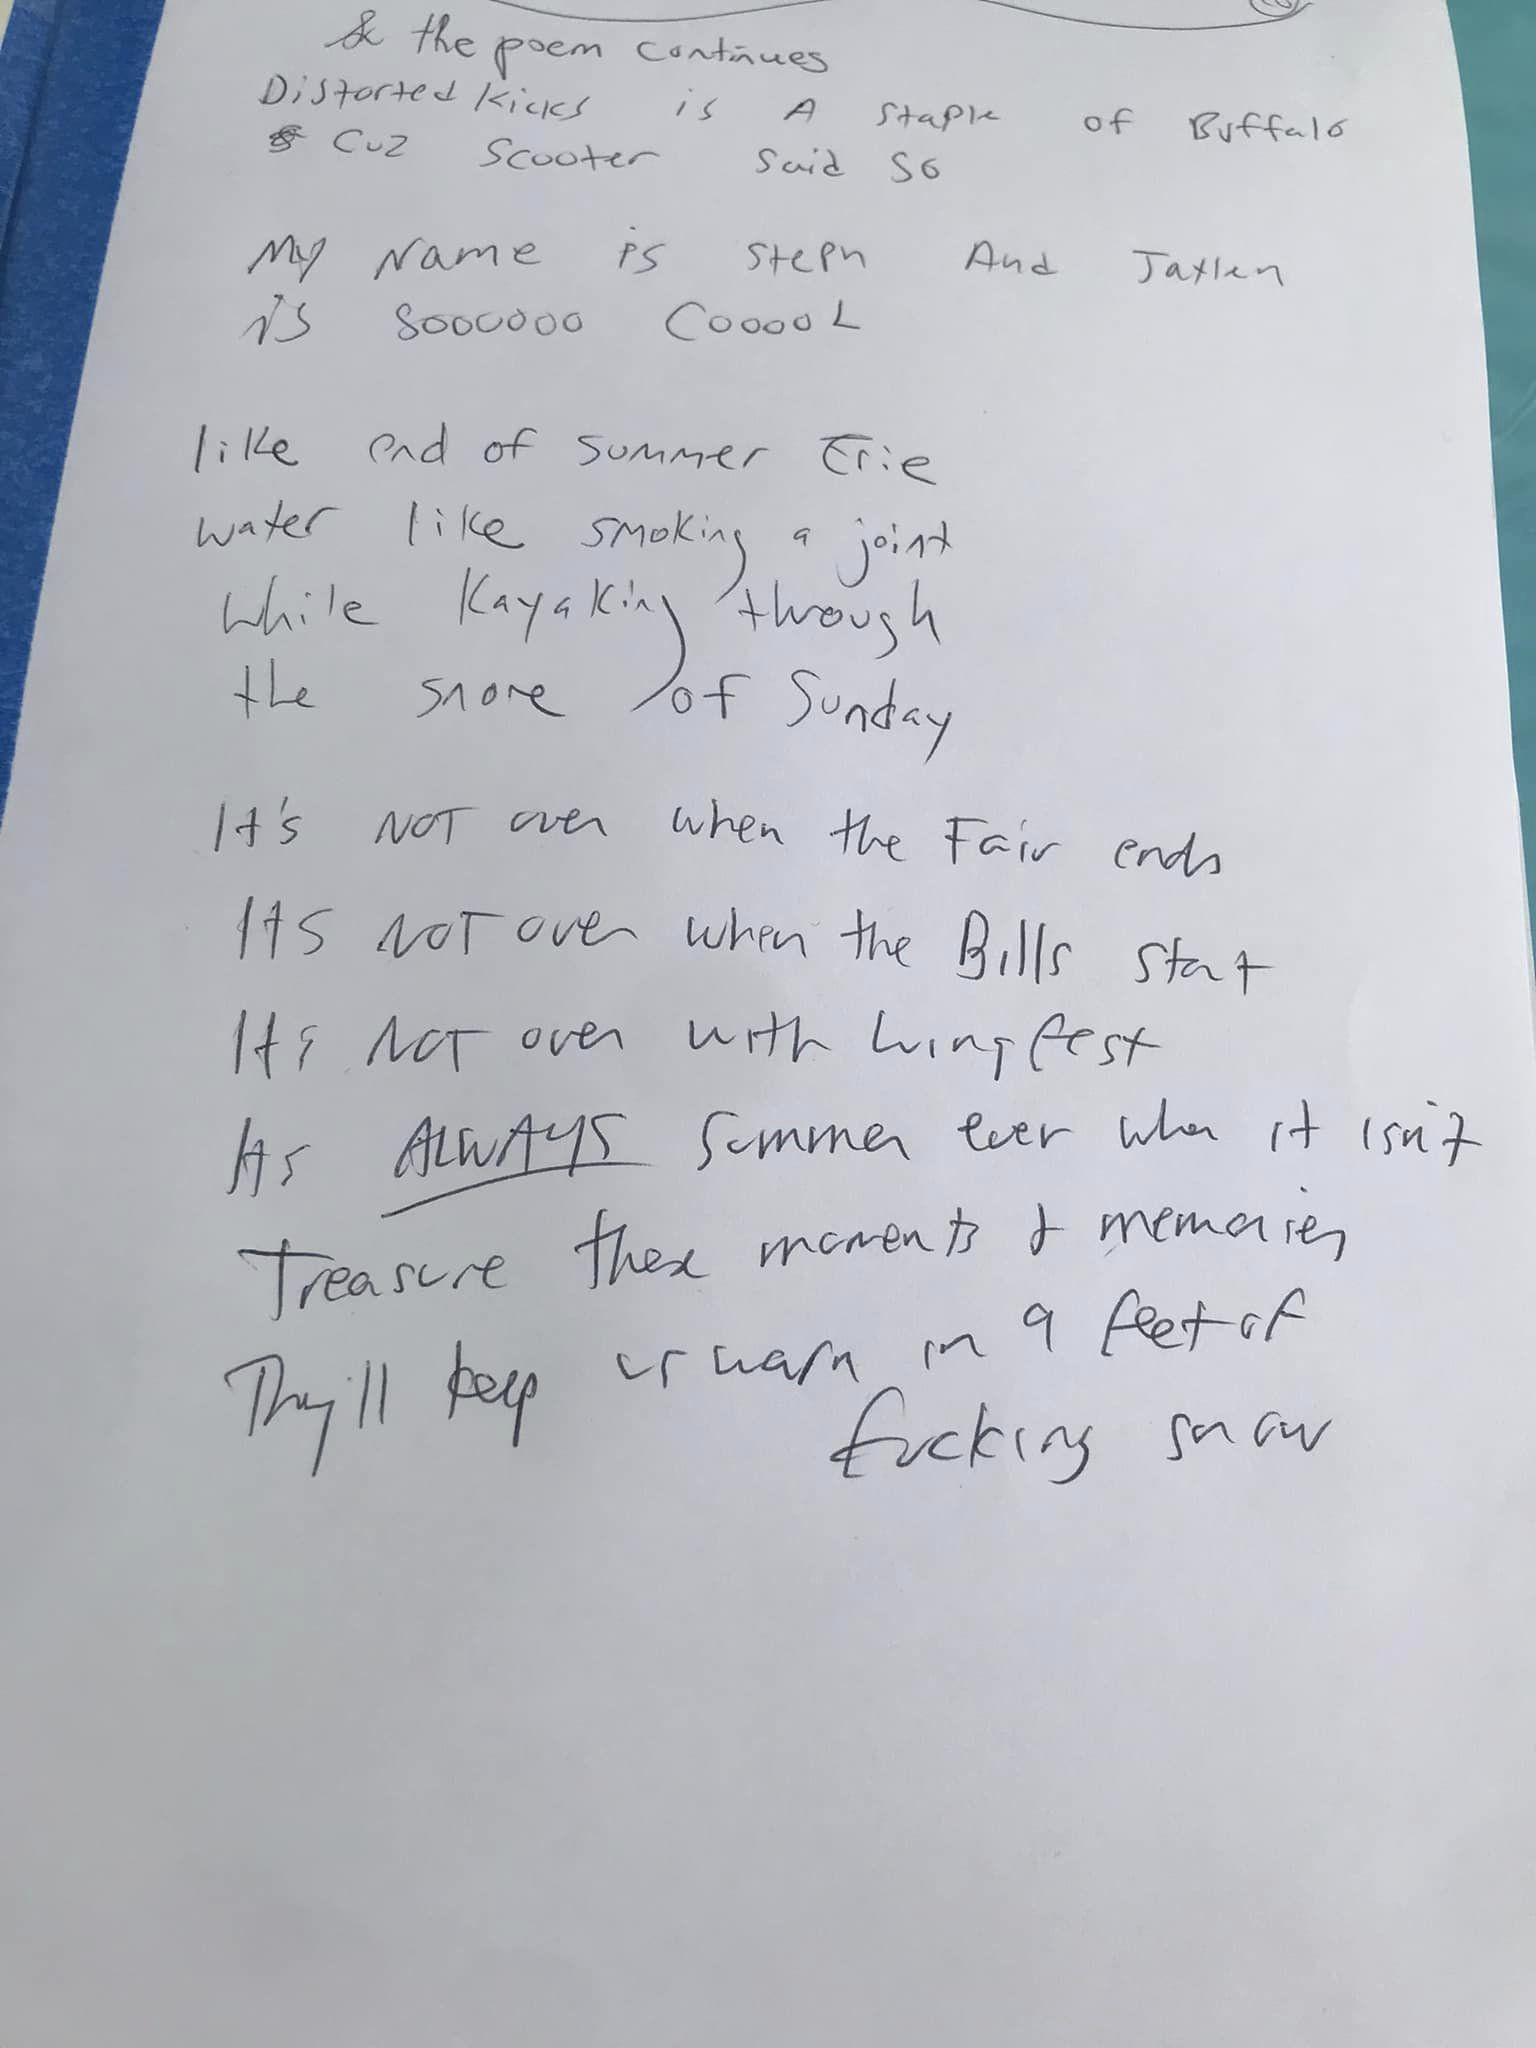 & the poem continues
Distorted Kicks is A Staple of Buffalo
Cuz Scooter Said So
My Name is Steph And Jaxlen
is Sooooooo CooooL
like end of summer Erie
water like smoking a joint
while Kayaking through
the snore of Sunday
It's NOT over when the Fair ends
Its NOT over when the Bills start
Its NOT over with wingfest
Its ALWAYS summer ever when it isn't
Treasure these moments & memories
They'll keep us warm in 9 feet of
fucking snow